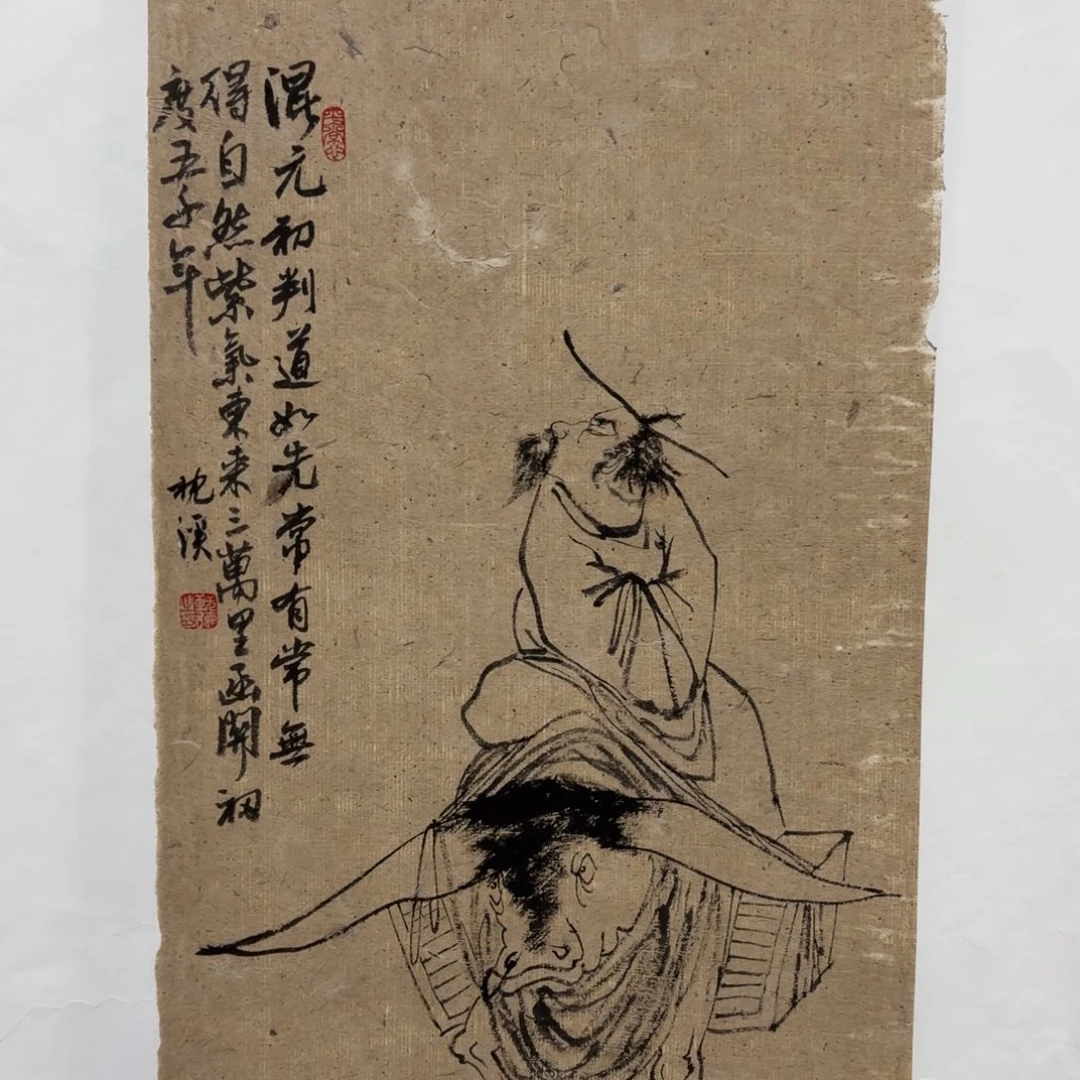 混元初判道如先常有常無
得自然紫氣東来三萬里函関初
度五千年
枕溪